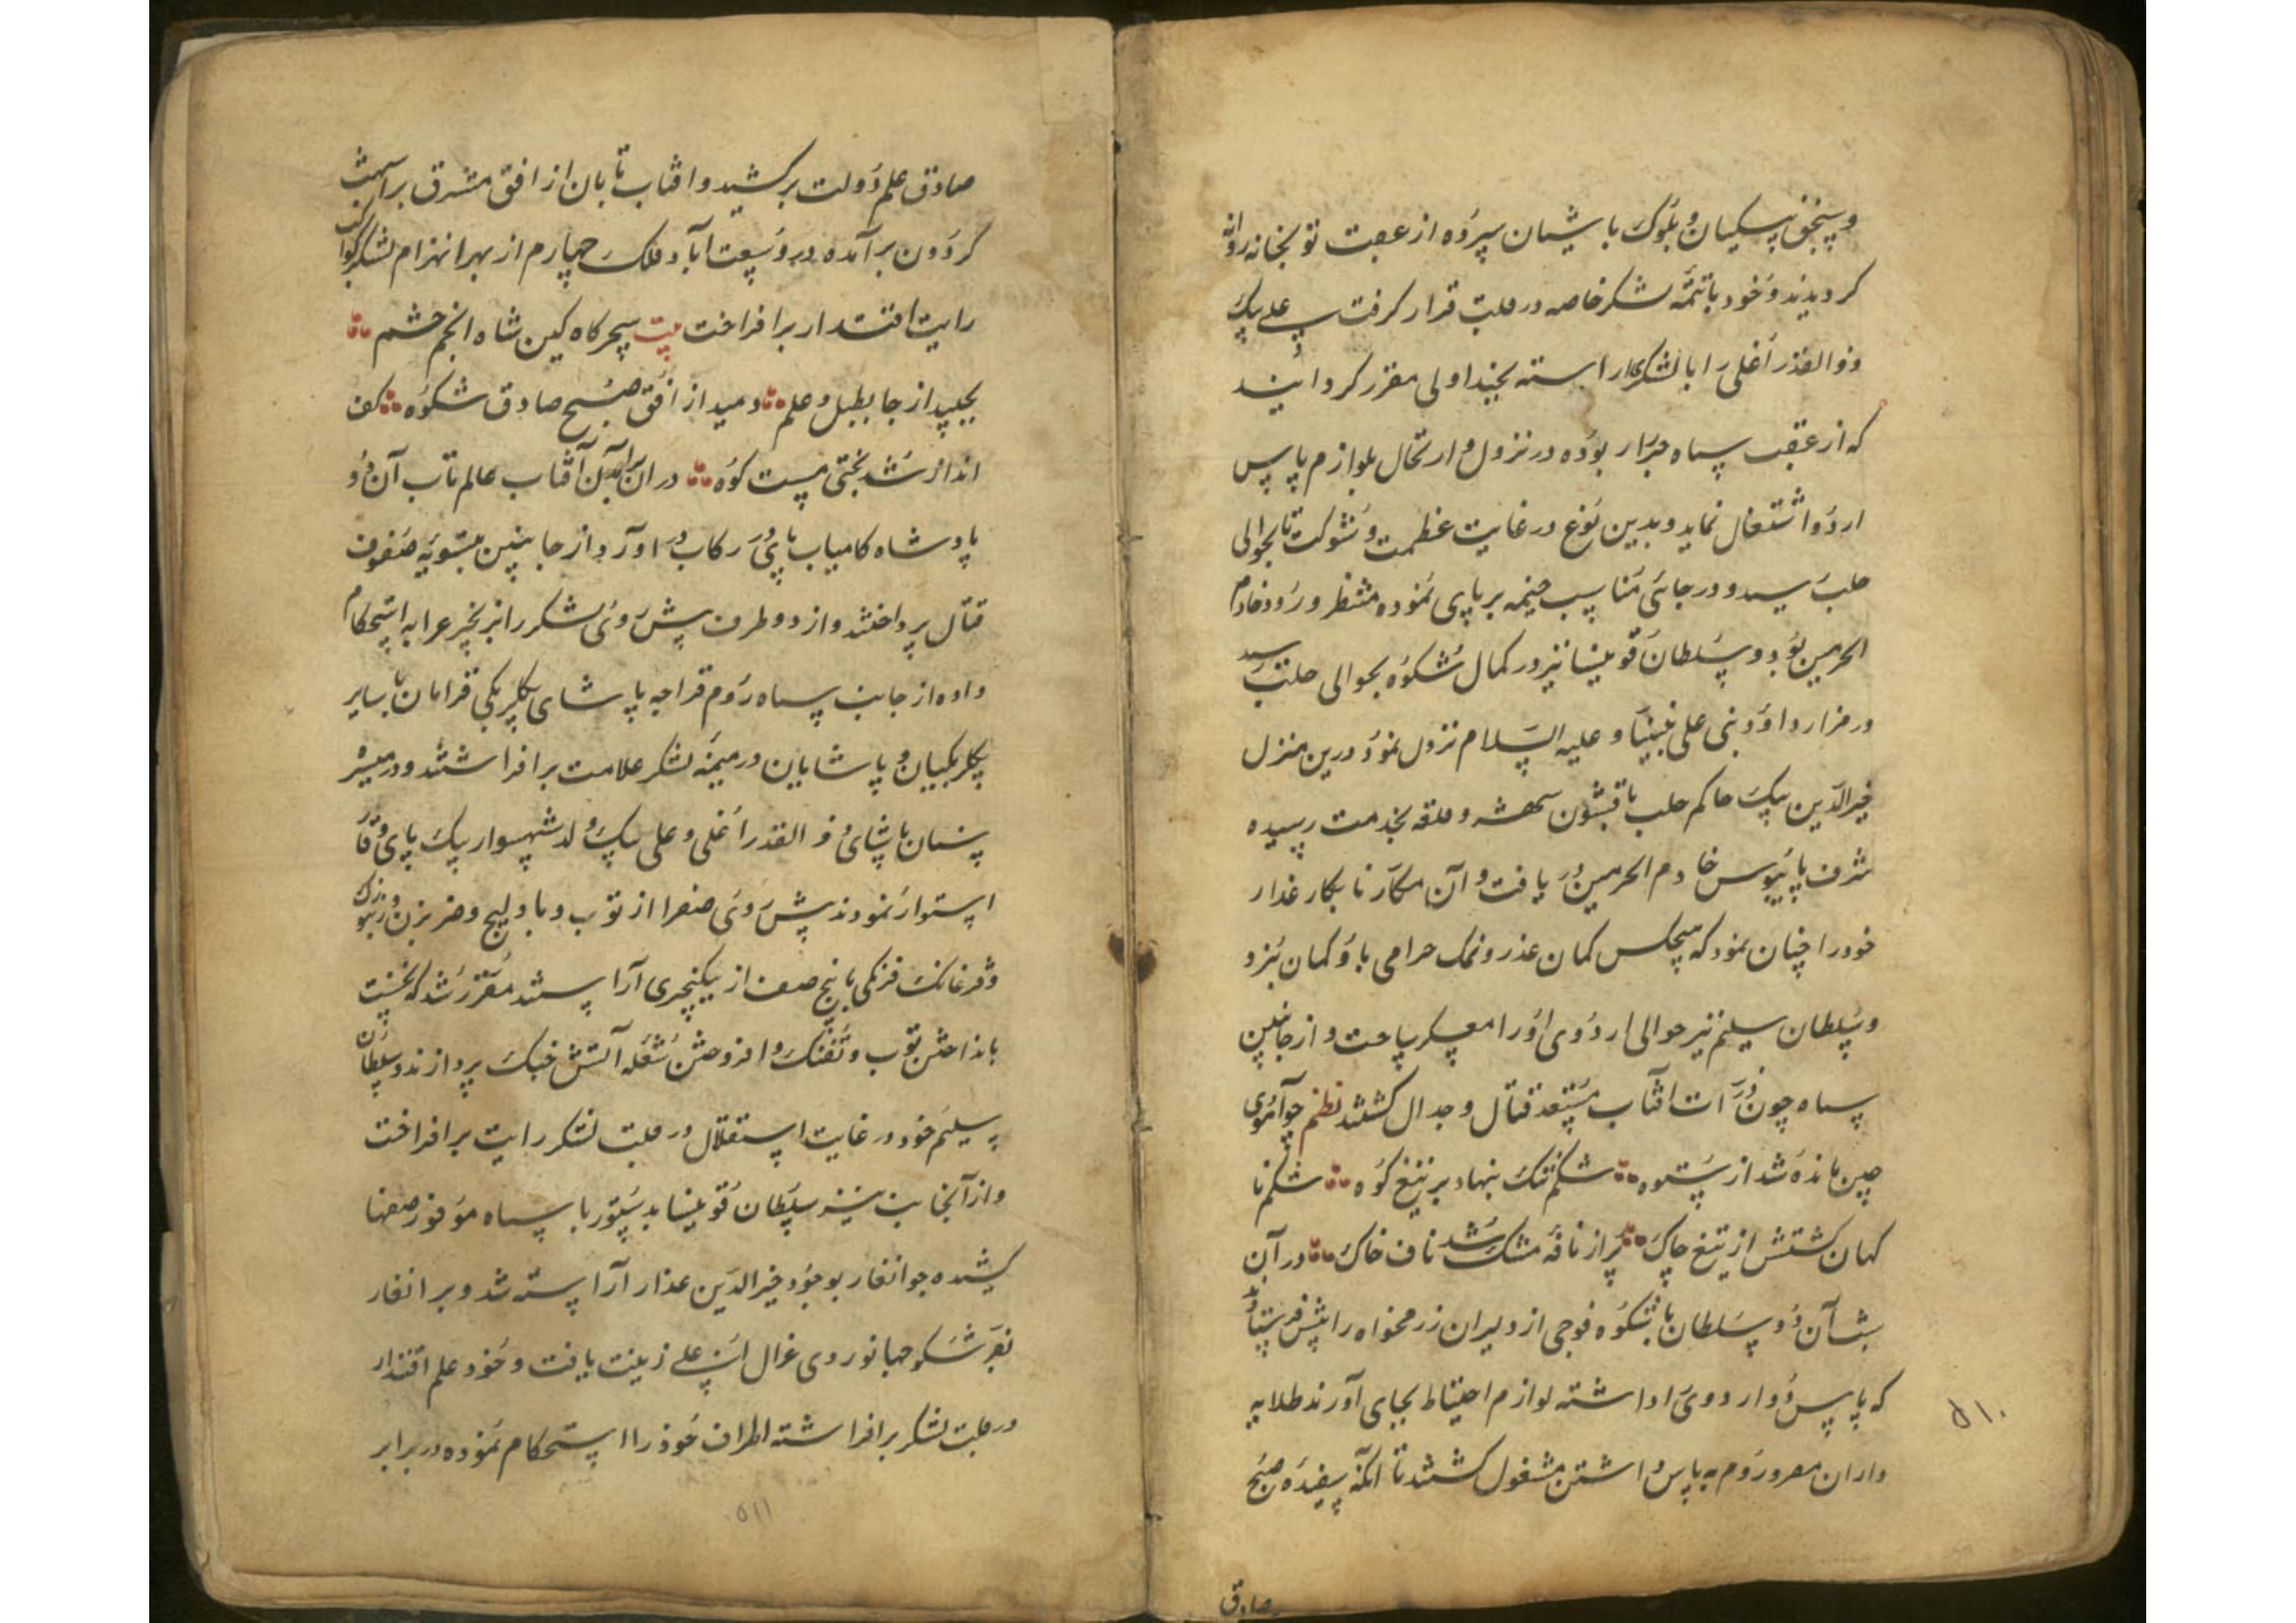 و سنجق بیکیان و بلوک باشیان سپرده از عقب توبخانه روانه
کردیدند و خود با تتمه لشکر خاصه در قلب قرار کرفت علی بیک
ذوالقدر اغلی را با لشکر اراسته بجنداولی مقرر کردانید
که از عقب سپاه جرار بوده در نزول و ارتحال بلوازم پاس
اردو اشتغال نماید و بدین نوع در غایت عظمت و شوکت تا بحوالی
حلب رسید و در جائی مناسب خیمه بر پای نموده منتظر ورود خادم
الحرمین بود و سلطان قوینسا نیز در کمال شکوه بحوالی حلب رسید
در مزار داود نبی علی نبینا و علیه السلام نزول نمود درین منزل
خیرالدین بیک حاکم حلب با قشون و حلقه بخدمت رسیده
شرف پایبوس خادم الحرمین دریافت و آن مکار نابکار غدار
خود را چنان نمود که هیچکس کمان غدر و نمک حرامی باو کمان نبرد
و سلطان سلیم نیز حوالی اردوی او را معسکر ساخت و از جانبین
سپاه چون ذرات افتاب مستعد قتال و جدال کشتند نظم چو آهوی
چین مانده شد از ستوه شکم تنک بنهاد بر تیغ کوه شکم نا
کهان کشتش از تیغ چاک پر از نافه مشک شد ناف خاک در آن
شب آن دو سلطان با شکوه فوجی از دلیران رزمخواه را پیش فرستادند
که پاس دو اردوی اداشته لوازم احتیاط بجای آورند طلایه
داران مصر و روم به پاس داشتن مشغول کشتند تا انکه سفیده صبح
صادق
۵۱۰
صادق علم دولت برکشید و افتاب تابان از افق مشرق بر اسمت
کردون برآمده در وسعت اباد فلک چهارم از بهر انهزام لشکر کواکب
رایت اقتدار برافراخت بیت سحرکاه کین شاه انجم حشم
بجنبید از جا بطبل و علم دمید از افق صبح صادق شکوه کف
انداز شد بختی مست کوه در ان برآمدن آفتاب عالم تاب آن دو
پادشاه کامیاب پای در رکاب دراورد از جانبین بتسویه صفوف
قتال پرداختند و از دو طرف پیش روی لشکر را بزنجیر عرابه استحکام
داده از جانب سپاه روم قراجه پاشای بکلربکی قرامان با سایر
بکلربکیان و پاشایان در میمنه لشکر علامت برافراشتند و در میسره
سنان پاشای و ذوالقدر اغلی و علی بیک ولد شهسوار بیک پای وقار
استوار نمودند پیش روی صفرا از توب و بادلیج و ضربزن و زنبورک
و قرغانک فرنکی با پنج صف از یکیچری آراستند مقرر شد که نخست
بانداختن توب و تفنک و افروختن شعله آتش جنک پردازند و سلطان
سلیم خود در غایت استقلال در قلب لشکر رایت برافراخت
و از آنجانب نیز سلطان قوینسا بدستور با سپاه موفور صفها
کشیده جوانغار بوجود خیرالدین غدار آراسته شد و برانغار
بفر شکوه جهانوردی غزال اس علی زینت یافت و خود علم اقتدار
در قلب لشکر برافراشته اطراف خود را استحکام نموده در برابر
۵۱۱